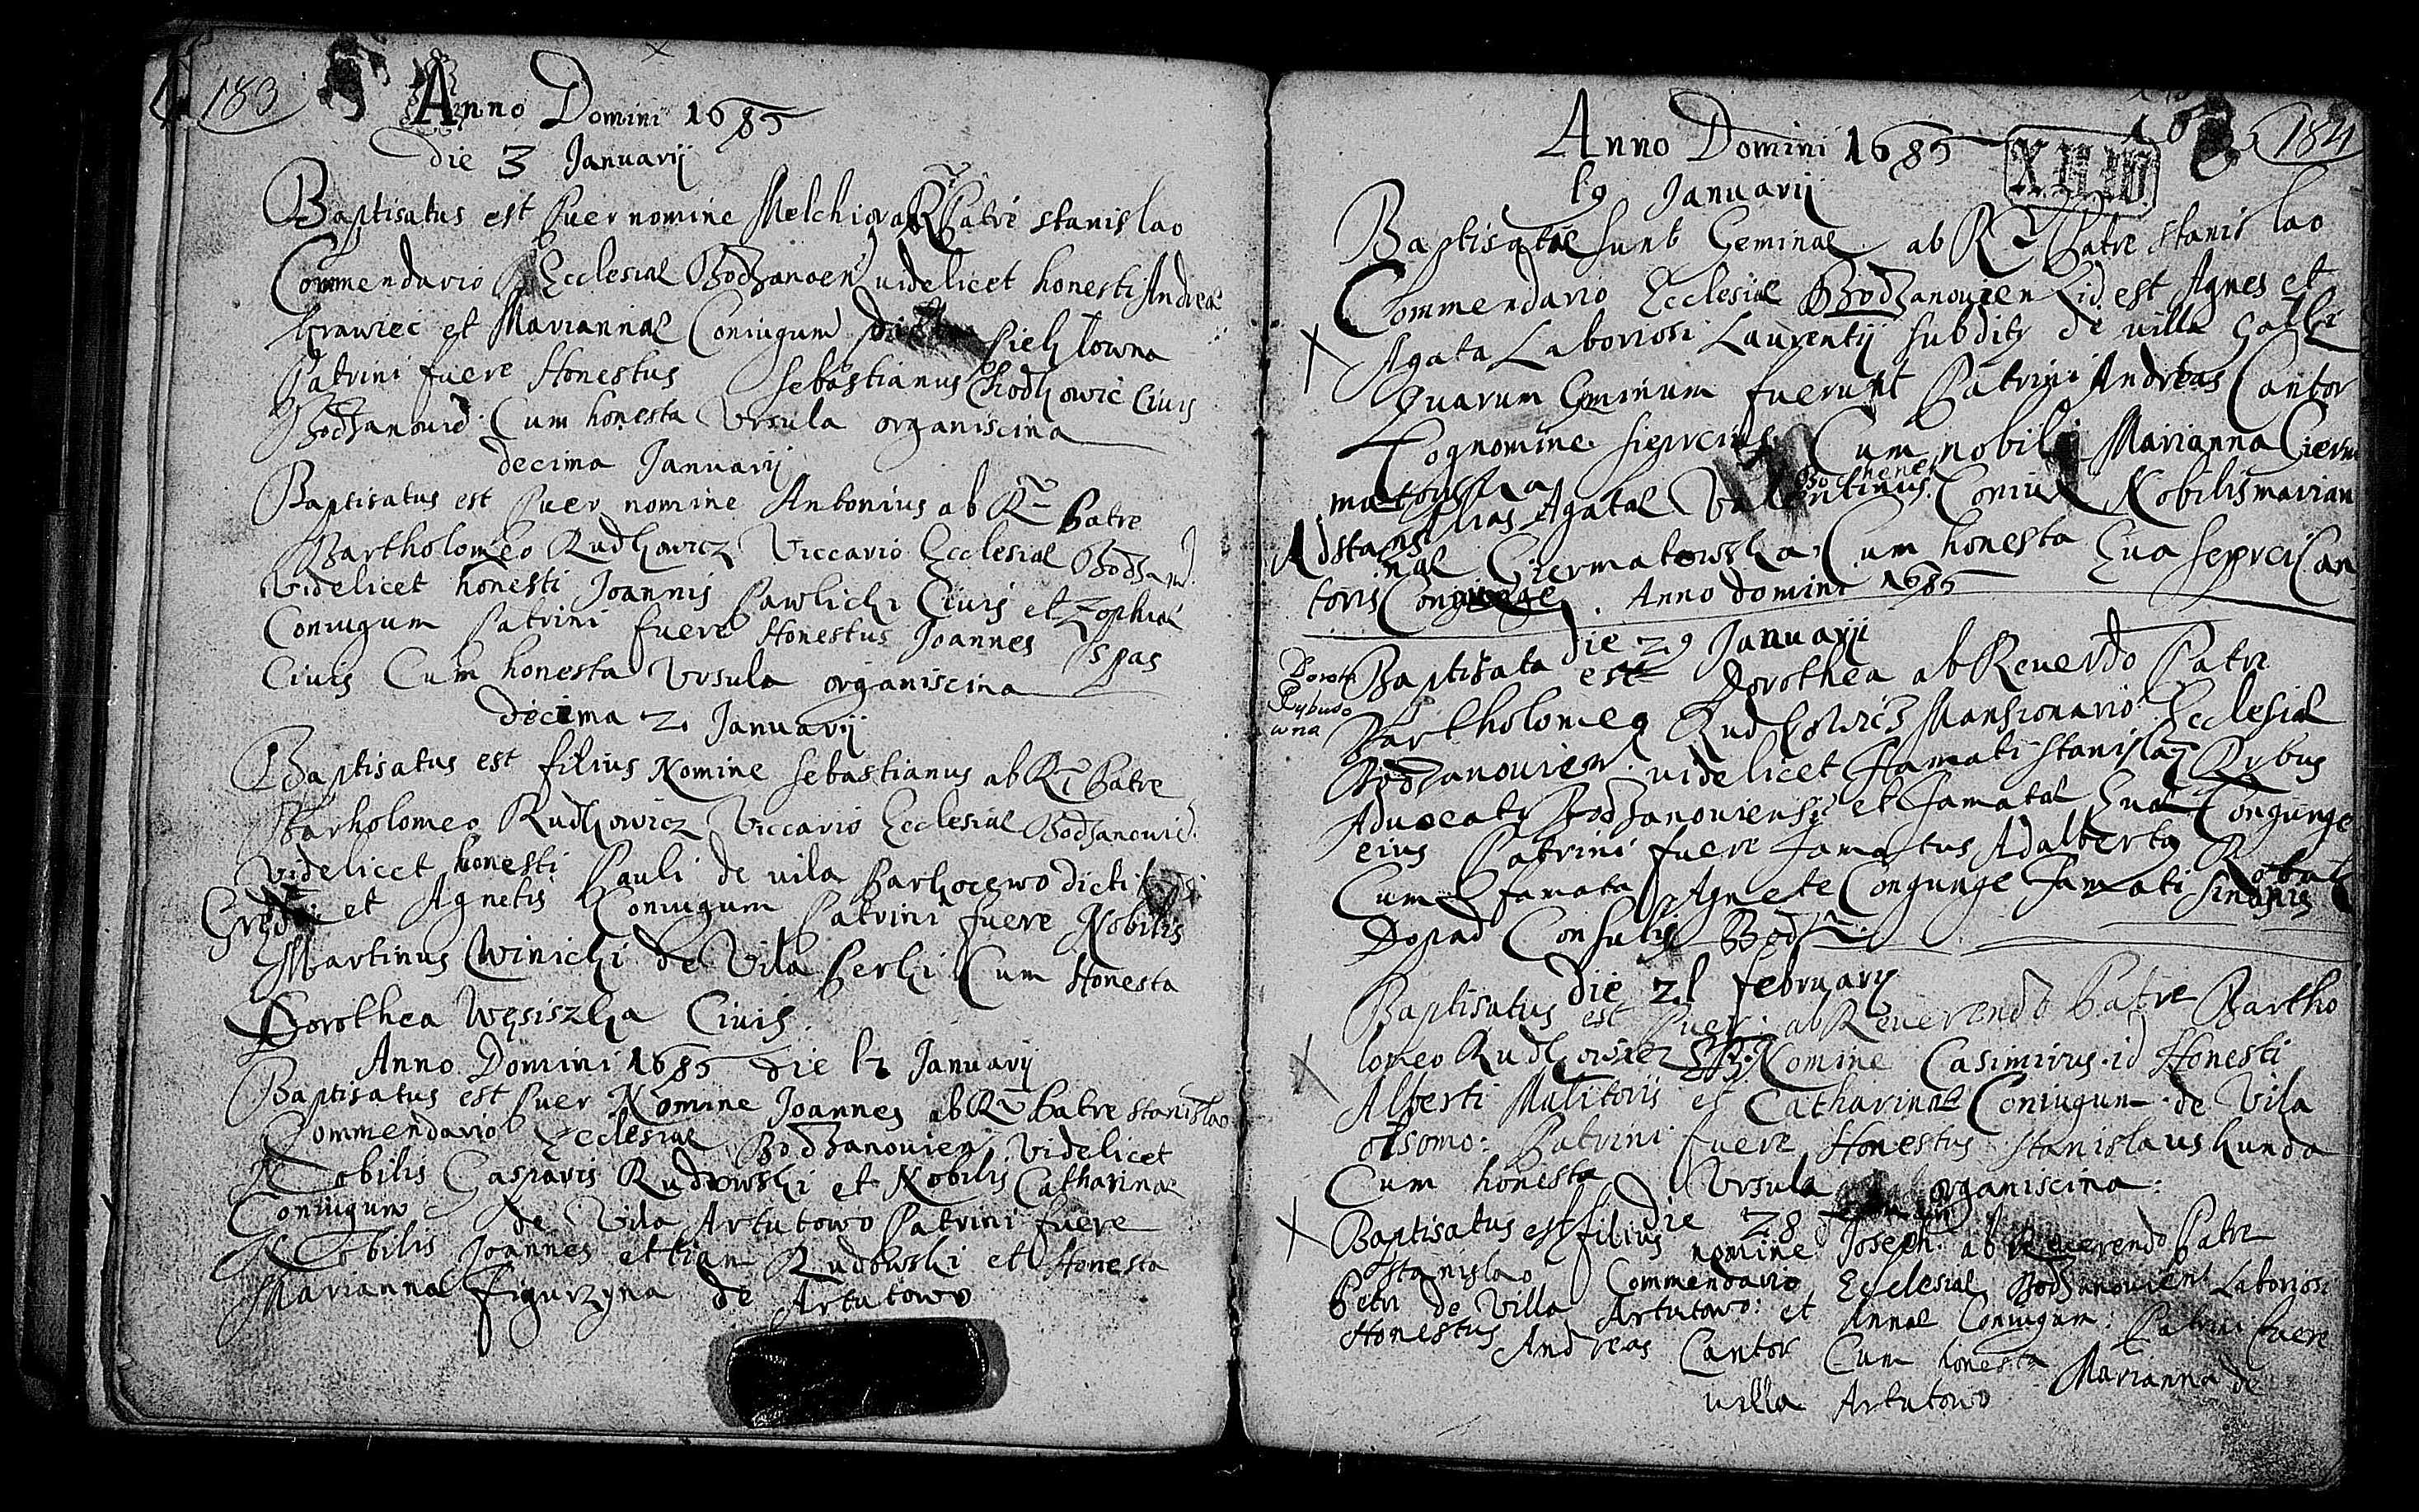 183
Anno Domini 1685
die 3 Januarij
Baptisatus est Puer nomine Melchior a R Patre Stanislao
Commendario Ecclesiae Bodzanoen videlicet honesti Andreae
krawiec et Mariannae Coniugum
Patrini fuere Honestus Sebastianus Ciuis
Bodzanouie. Cum honesta Vrsula organiscina
decima Januarij
Baptisatus est Puer nomine Antonius ab R Patre
Bartholomeo Rudkowicz Viccario Ecclesiae Bodzan
Videlicet honesti Joannis Pawlicki Ciuis et Zophiae
Coniugum Patrini fuere Honestus Joannes Spas
Ciuis Cum honesta Vrsula organiscina
decima 2 Januarij
Baptisatus est filius Nomine Sebastianus ab R Patre
Bartholomeo Rudkowicz Viccario Ecclesiae Bodzanouie.
Videlicet honesti Pauli de vila Parkocewo dicti
et Agnetis Coniugum Patrini fuere Nobilis
Martinus Cwinicki de Vila Perki Cum Honesta
Dorothea Węsiszka Ciuis.
Anno Domini 1685 die 12 Januarij
Baptisatus est Puer Nomine Joannes ab R Patre Stanislao
Commendario Ecclesiae Bodzanouien. Videlicet
Nobilis Casparis Rudowski et Nobilis Catharinae
Coniugum de Vila Artutowo Patrini fuere
Nobilis Joannes ettiam Rudowski et Honesta
Mariannae Figurzyna de Artutowo
184
Anno Domini 1685
19 Januarij
Baptisatae sunt Geminae ab R Patre Stanislao
Commendario Ecclesiae Bodzanouien id est Agnes et
Agata Laboriosi Laurentij subdity de villa
Quarum Geminum fuerunt Patrini Andreas Cantor
Cognomine Cum nobili Marianna Cierm
matowska
Bochenek
Alias Agatae Valentinus Coniux Nobilis marian
Adstans
nae Ciermatowska Cum honesta Eua Can
toris Coniuge. Anno domini 1685
die 29 Januarij
Dorota
Rybuso
wna
Baptisata est Dorothea ab Reuerdo Patre
Bartholomeo Rudkowicz Mansionario Ecclesiae
Bodzanouien. videlicet Famati Stanislai Rybus
Aduocati Bodzanouiensi et Famatae Euae Congunge
eius Patrini fuere Famatus Adalbertus
Cum Famata Agnete Congunge Famati
Dopad Consulis Bodz
die 21 februarij
Baptisatus est Puer ab Reuerendo Patre Bartho
lomeo Rudkowicz Nomine Casimirus id Honesti
Alberti Mulitoris et Catharinae Coniugum de Vila
Patrini fuere Honestus Stanislaus kunda
Cum honesta Vrsula organiscina:
die 28
Baptisatus est filius nomine Joseph ab Reuerendo Patre
Stanislao Commendario Ecclesiae Bodzanouien Laboriosi
Petri de Villa Artutowo: et Annae Coniugum: Patrini fuere
Honestus Andreas Cantor Cum honesta Marianna de
villa Artutowo